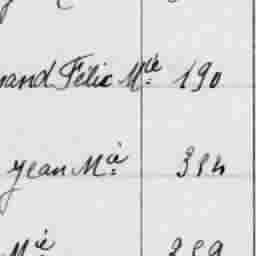 nand Félix Mie 190
Jean Mie 384
Mie 259